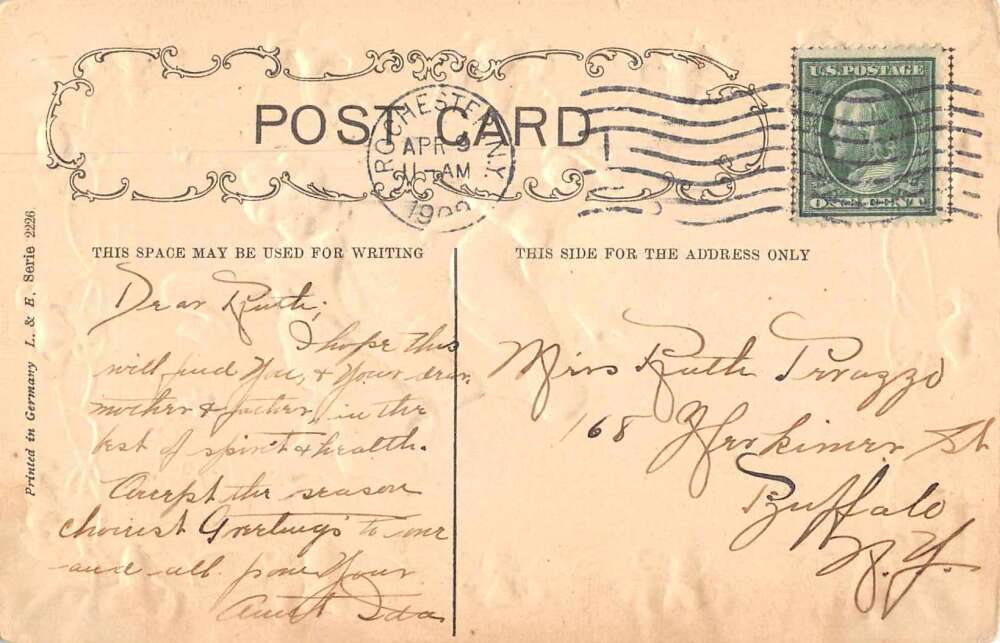 POST CARD
ROCHESTER, N.Y.
APR 9
11-AM
1909
U.S. POSTAGE
THIS SPACE MAY BE USED FOR WRITING
THIS SIDE FOR THE ADDRESS ONLY
Printed in Germany L. & E. Serie 2226
Dear Ruth;
I hope this
will find You, & Your dear
mother & father, in the
best of spirit & health.
Accept the season
choicest Greetings to one
and all from Your
Aunt Ida
Miss Ruth
168 Herkimer St
Buffalo
N.Y.